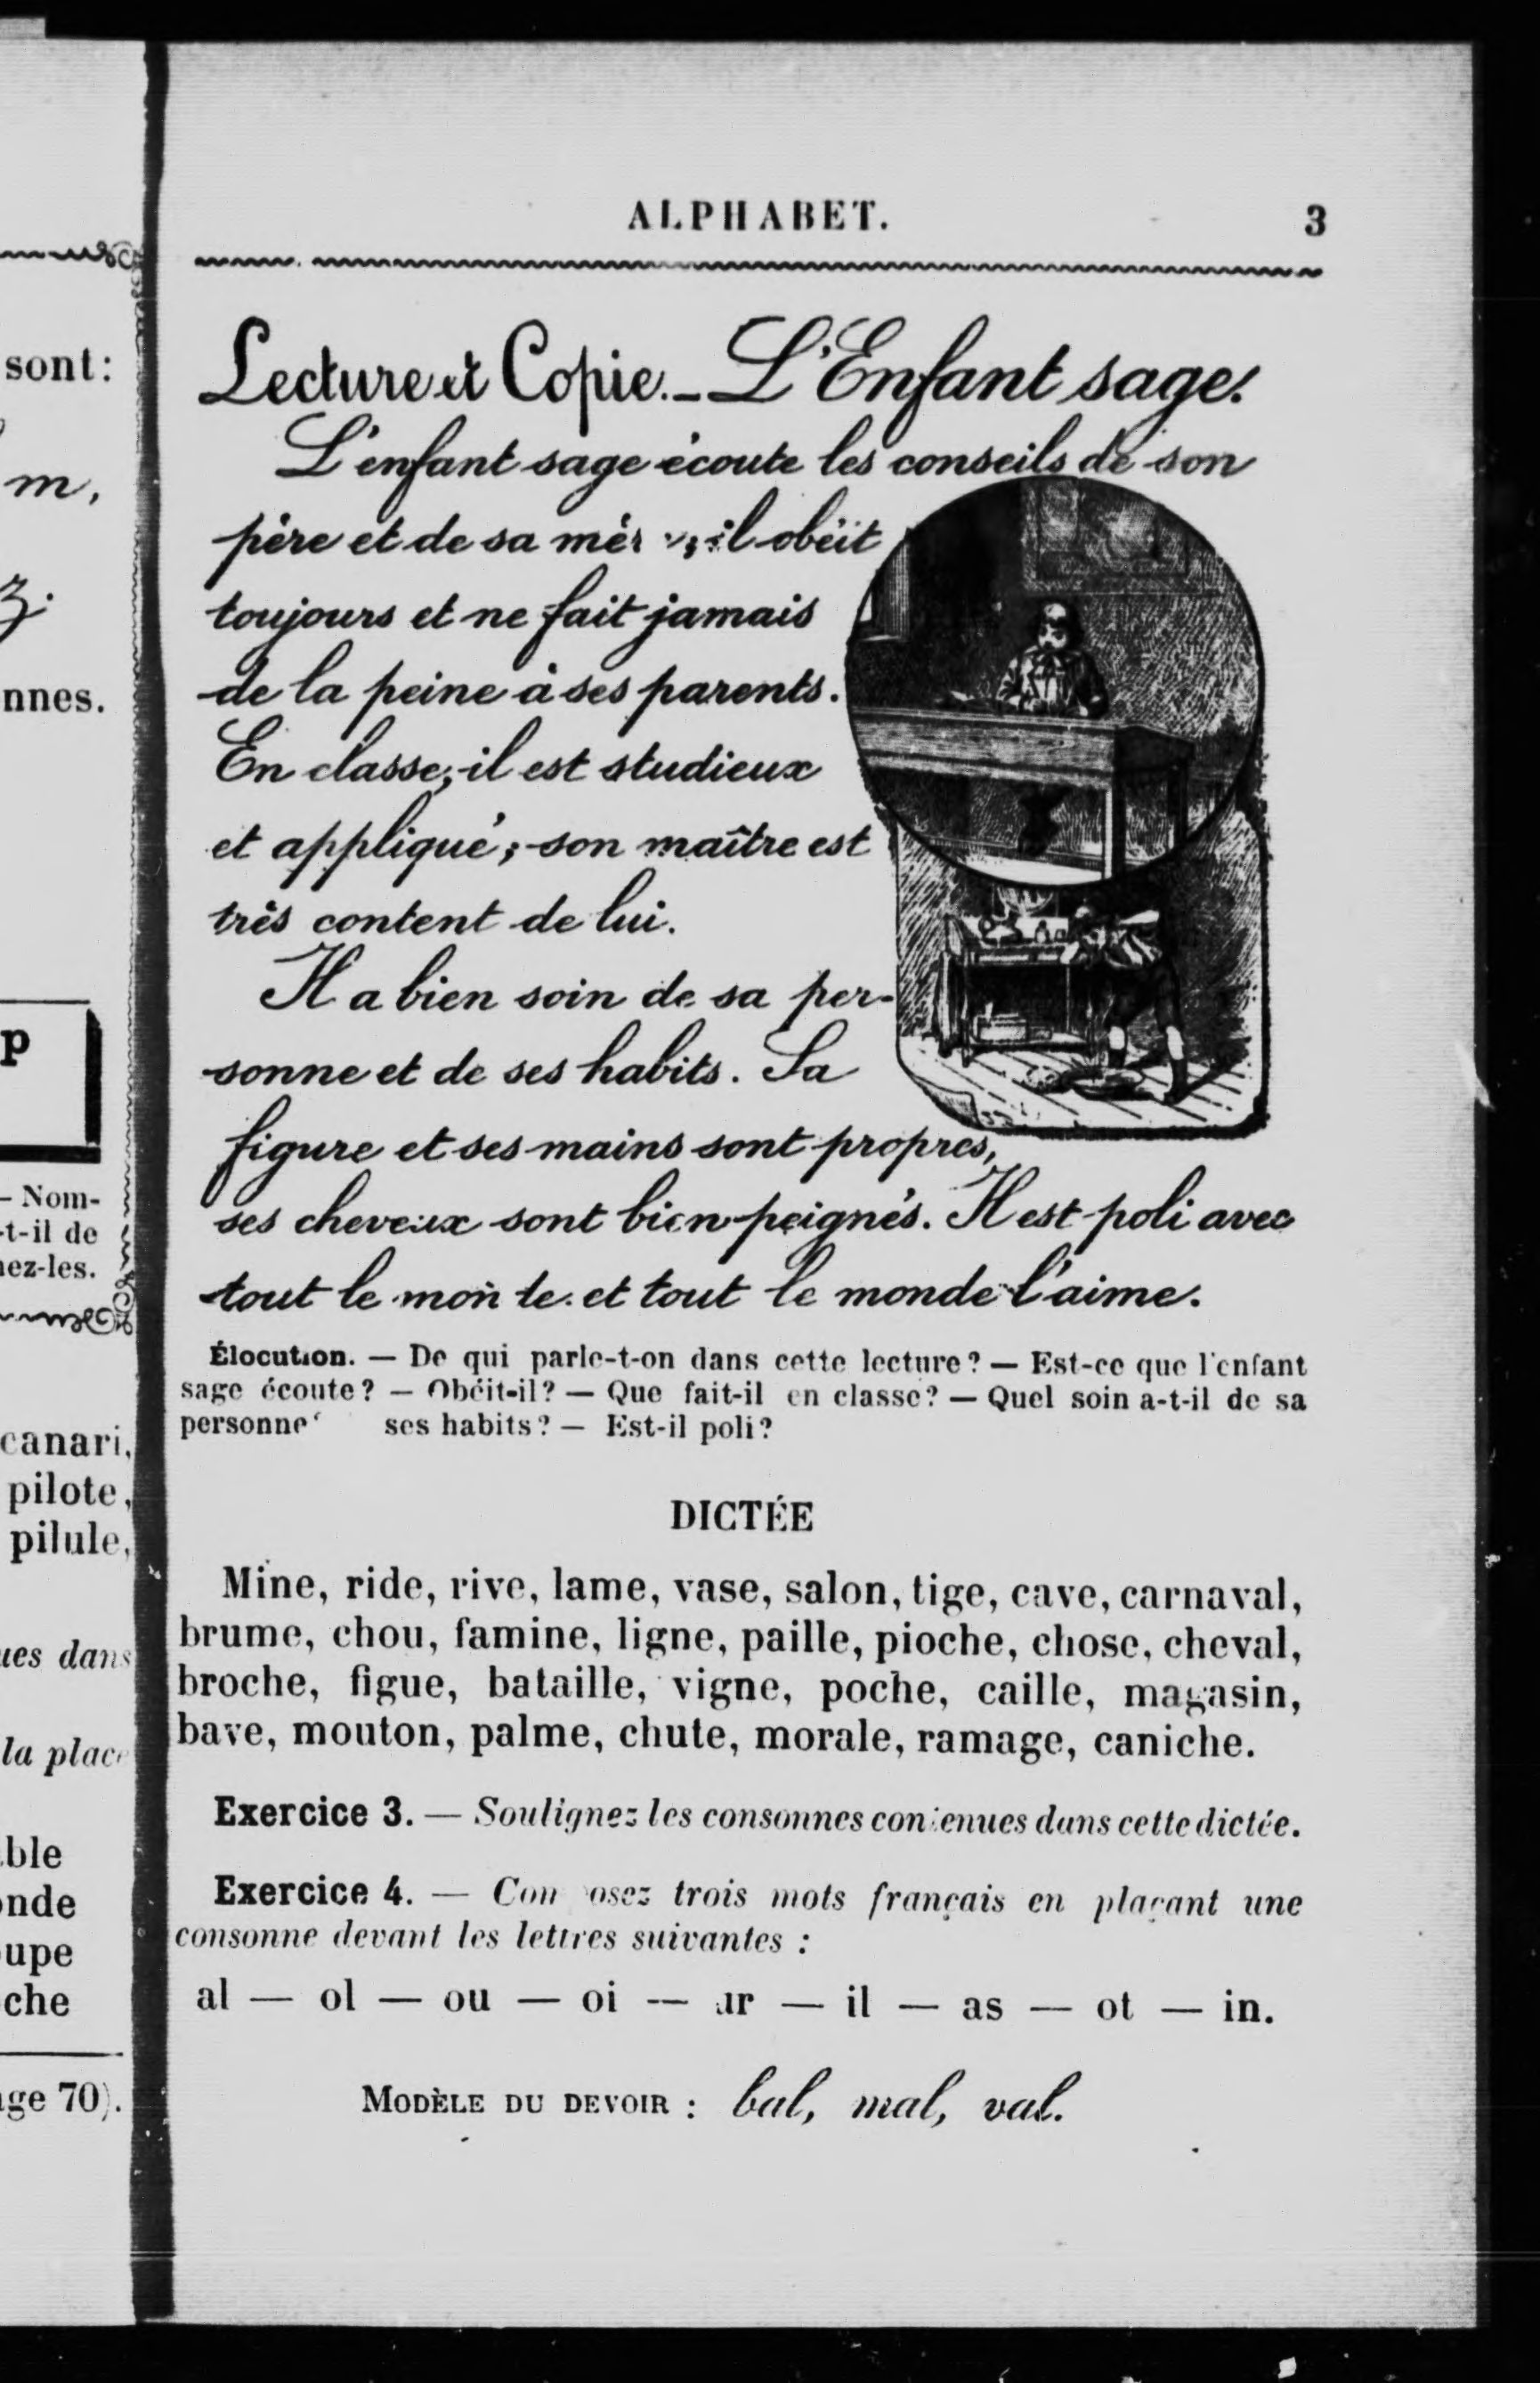 ALPHABET. 3
Lecture et Copie. _ L'Enfant sage.
L'enfant sage écoute les conseils de son
père et de sa mère, il obéit
toujours et ne fait jamais
de la peine à ses parents.
En classe, il est studieux
et appliqué; son maître est
très content de lui.
Il a bien soin de sa per-
sonne et de ses habits. Sa
figure et ses mains sont propres,
ses cheveux sont bien peignés. Il est poli avec
tout le monde et tout le monde l'aime.
Élocution. — De qui parle-t-on dans cette lecture? — Est-ce que l'enfant
sage écoute? — Obéit-il? — Que fait-il en classe? — Quel soin a-t-il de sa
personne ses habits? — Est-il poli?
DICTÉE
Mine, ride, rive, lame, vase, salon, tige, cave, carnaval,
brume, chou, famine, ligne, paille, pioche, chose, cheval,
broche, figue, bataille, vigne, poche, caille, magasin,
bave, mouton, palme, chute, morale, ramage, caniche.
Exercice 3. — Soulignez les consonnes contenues dans cette dictée.
Exercice 4. — Composez trois mots français en plaçant une
consonne devant les lettres suivantes :
al — ol — ou — oi — ar — il — as — ot — in.
MODÈLE DU DEVOIR : bal, mal, val.
sont:
m,
z.
nnes.
p
— Nom-
-t-il de
ez-les.
canari,
pilote,
pilule,
ues dans
la place
ble
onde
oupe
che
ge 70).